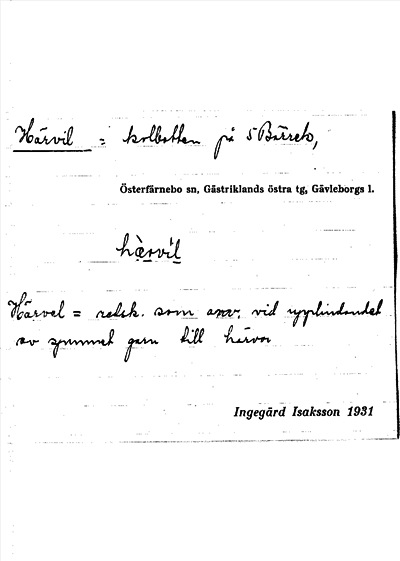 Härvil = kolbotten på S Bärrek,
Österfärnebo sn, Gästriklands östra tg, Gävleborgs l.
hà̤rvil
Härvel = redsk. som anv. vid upplindandet
av spunnet garn till härvor
Ingegärd Isaksson 1931